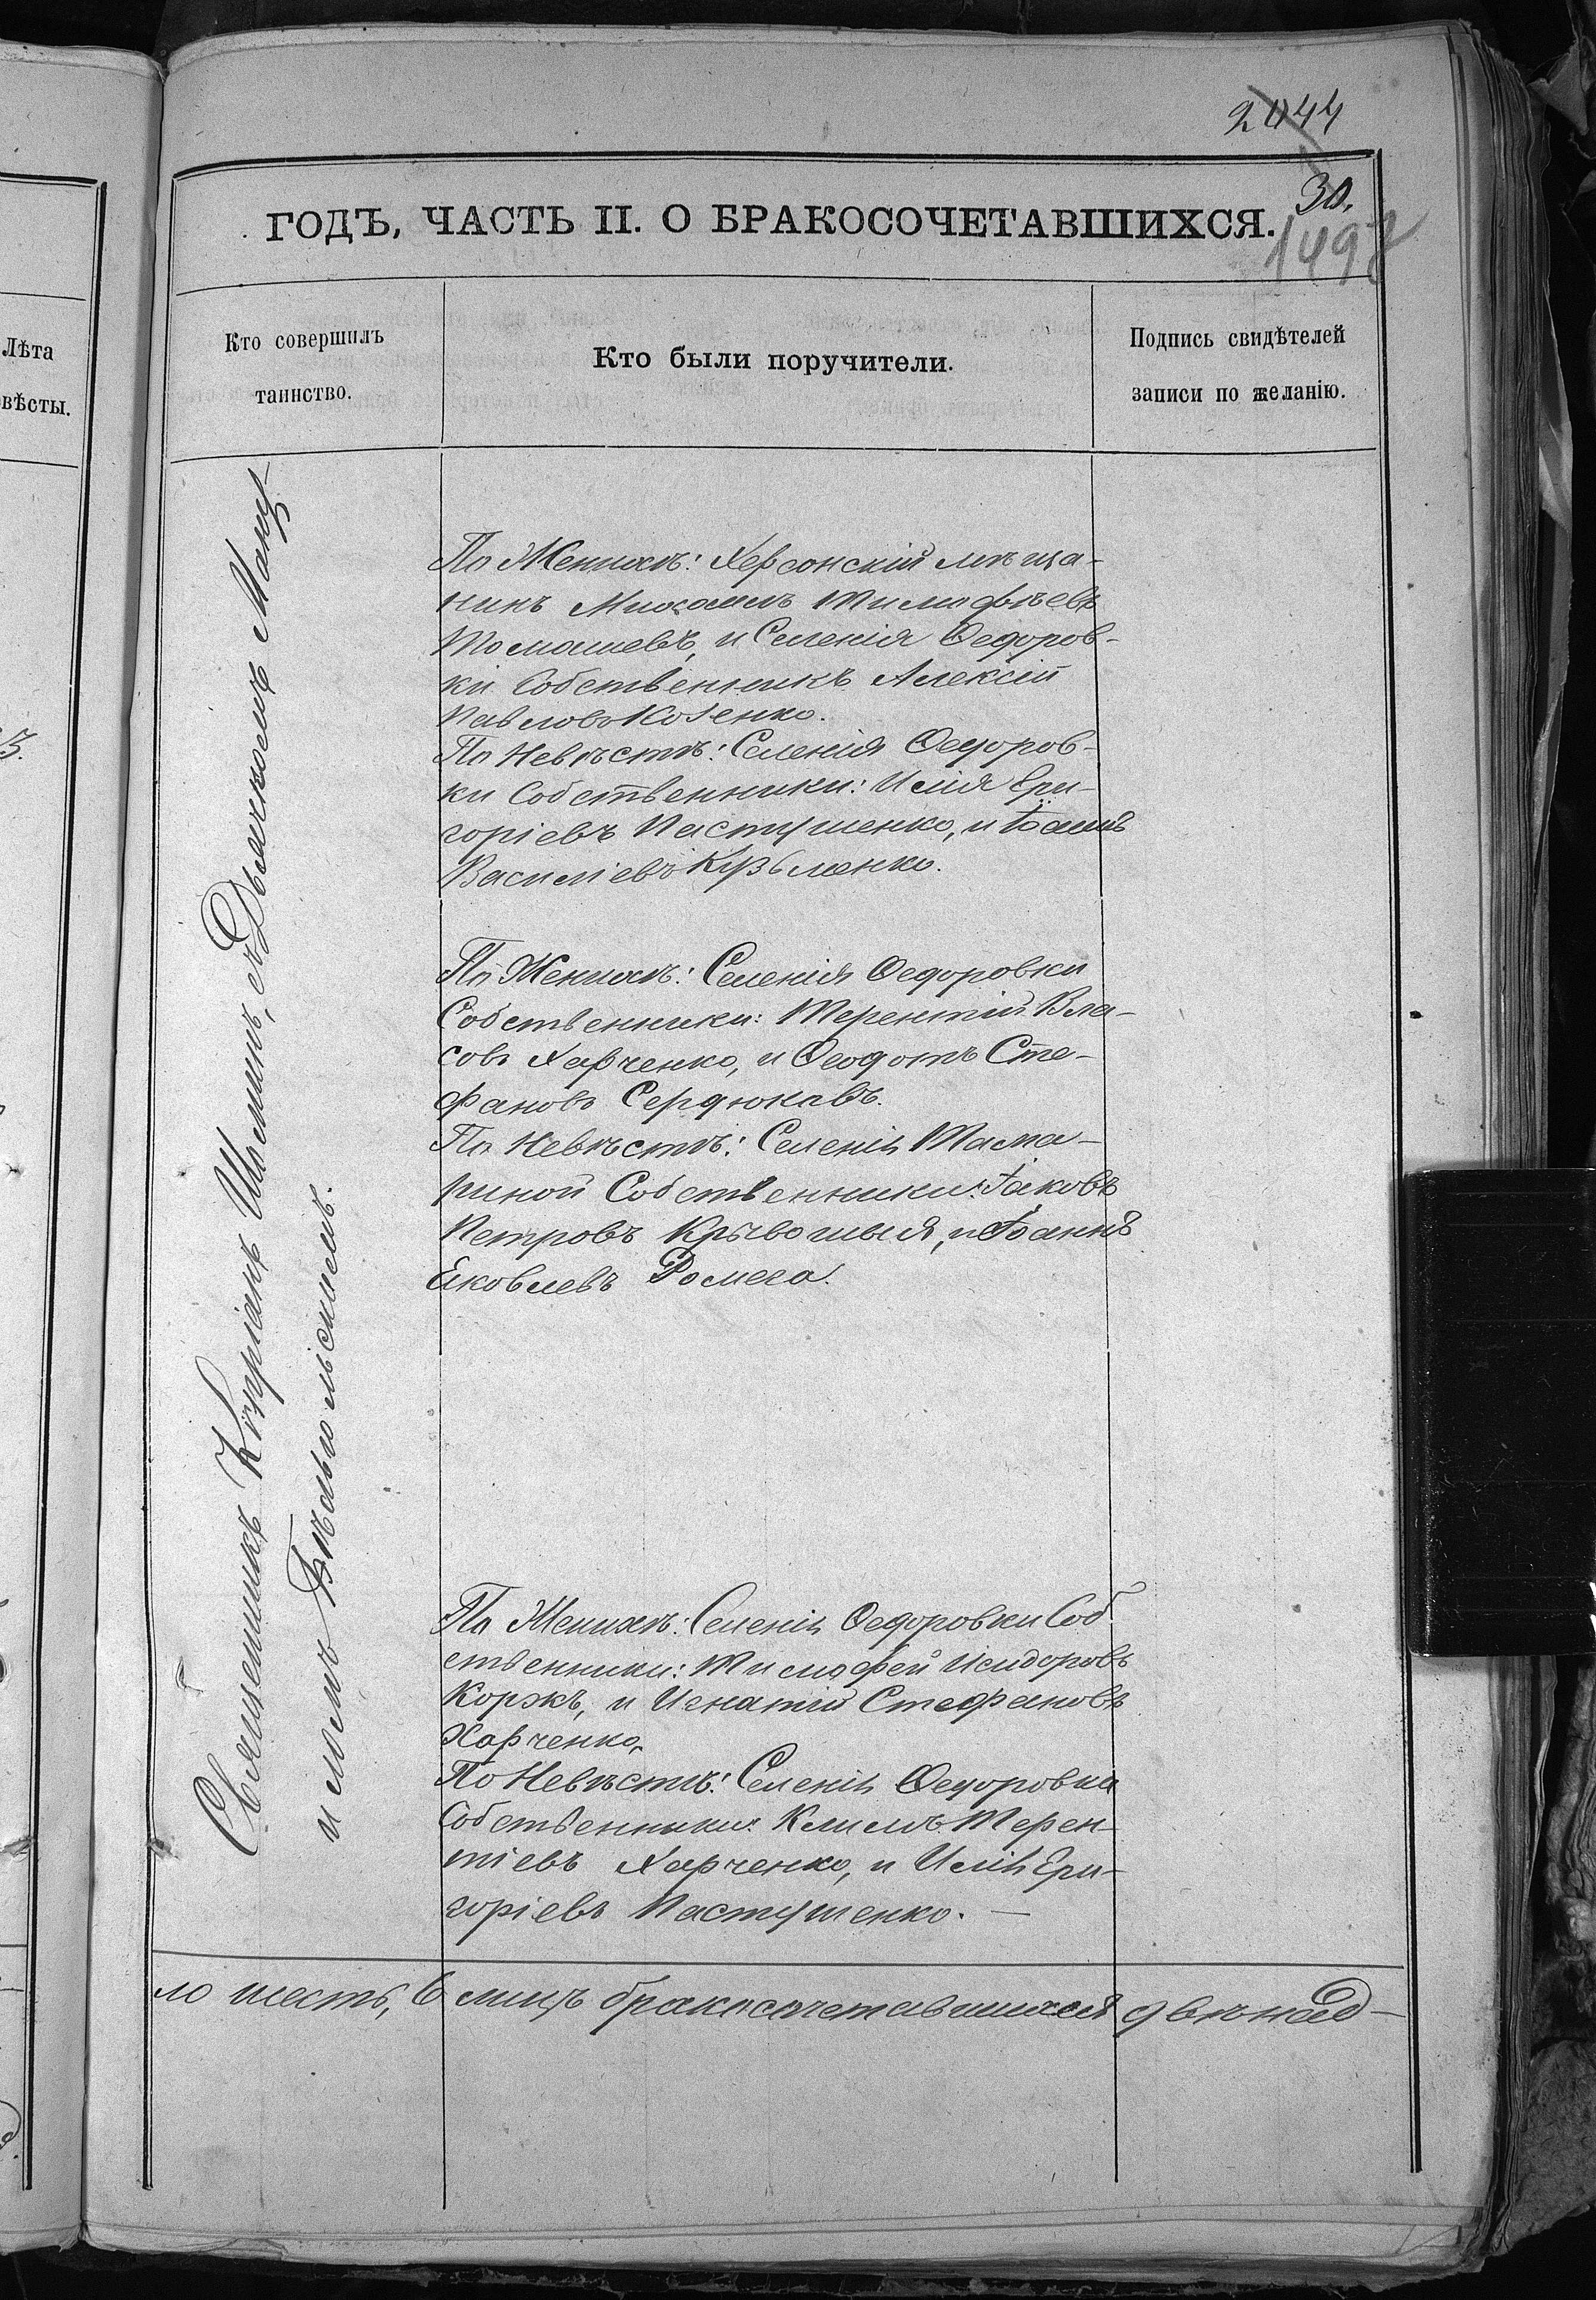 2044
30.
1498
ГОДЪ, ЧАСТЬ II. О БРАКОСОЧЕТАВШИХСЯ.
Лѣта
вѣсты.
Кто совершилъ
таинство.
Кто были поручители.
Подпись свидѣтелей
записи по желанію.
Священникъ Кипріанъ Шоминъ, съ Дьячкомъ
и ломъ
По Женихѣ: Херсонскій мѣща-
нинъ Михаилъ Тимофѣевъ
Томашевъ, и Селенія Ѳедоров-
ки Собственникъ Алексій
Павловъ Козенко.
По Невѣстѣ: Селенія Ѳедоров-
ки Собственники: Илія Гри-
горіевъ Пастушенко, и Іоаннъ
Василіевъ Кузьменко.
По Женихѣ: Селенія Ѳедоровки
Собственники: Терентій Вла-
совъ Харченко, и Ѳеодотъ Сте-
фановъ Сердюкавъ.
По Невѣстѣ: Селенія Тама-
риной Собственники: Іаковъ
Петровъ Крывошыя, и Іоаннъ
Яковлевъ Ромега.
По Женихѣ: Селенія Ѳедоровки Соб
ственники: Тимофей Исидоровъ
Коржъ, и Игнатій Стефановъ
Харченко,
По Невѣстѣ: Селенія Ѳедоровки
Собственники: Климъ Терен-
тіевъ Харченко, и Илія Гри-
горіевъ Пастушенко. —
ло шесть, 6 лицъ бракосочетавшихся двѣнад-